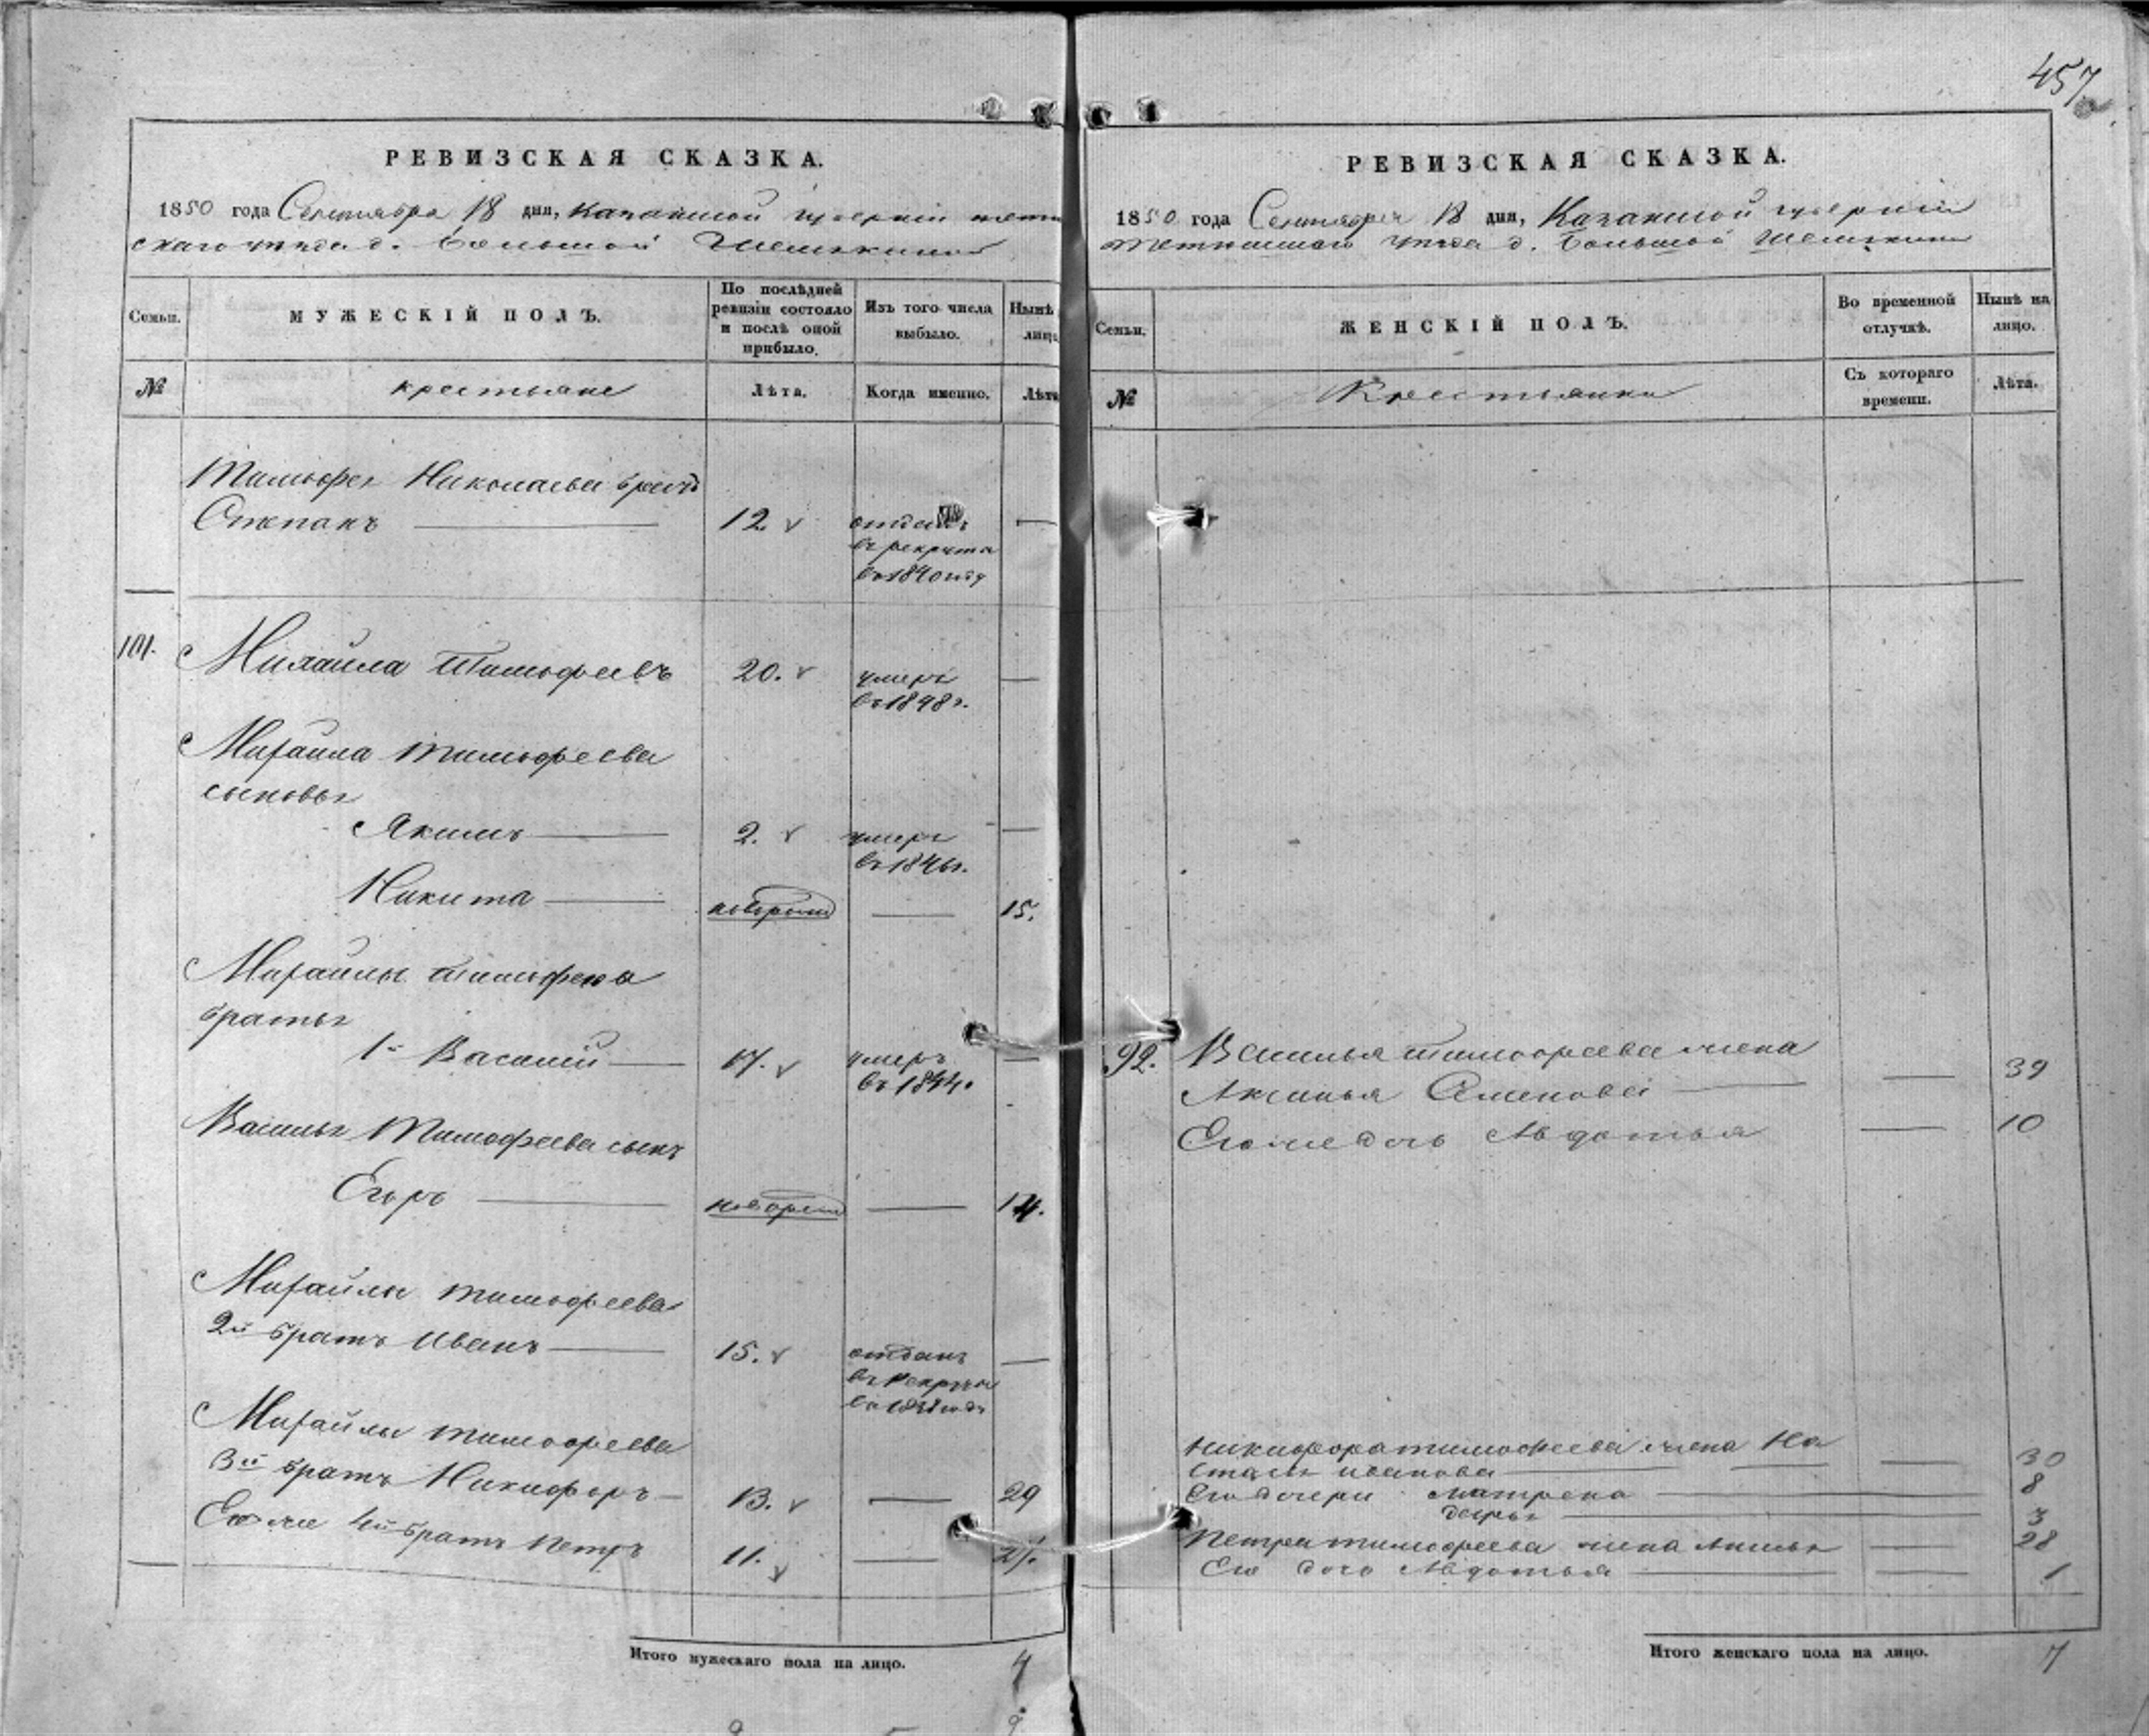 457
РЕВИЗСКАЯ СКАЗКА.
1850 года Сентября 18 дня, Казанской губернии тетю
скаго уезда д. Большой Шемякиной
Семьи.
МУЖЕСКІЙ ПОЛЪ.
По послѣдней ревизіи состояло и послѣ оной прибыло.
Изъ того числа выбыло.
Нынѣ лицо
№
крестьяне
Лѣта.
Когда именно.
Лѣта
Тимофея Николаева братъ
Степанъ 12. отданъ
въ рекрута
въ 1840 году
101. Михайла Тимофеевъ 20. умеръ
въ 1848 г.
Михайла Тимофеева
сыновья
Якимъ 2. умеръ
въ 1846 г.
Никита новорож 15.
Михайлы Тимофеева
братья
1й Василій 17. умеръ
въ 1844.
Василья Тимофеева сынъ
Егоръ новорож 14.
Михайлы Тимофеева
2й братъ Иванъ 15. отданъ
въ рекруты
Михайлы Тимофеева
3й братъ Никифоръ 13. 29
Его же 4й братъ Петръ 11. 27.
Итого мужескаго пола на лицо. 4
РЕВИЗСКАЯ СКАЗКА.
1850 года Сентября 18 дня, Казанской губерніи
тетюшскаго уезда д. Большой Шемякиной
Семьи.
ЖЕНСКІЙ ПОЛЪ.
Во временной отлучкѣ.
Нынѣ на лицо.
№
Крестьянки
Съ котораго времени.
Лѣта.
92. Василья тимофеева жена
Аксинья Семенова 39
Его же дочь Авдотья 10
Никифора тимофеева жена На
стасья иванова 30
Его дочери Матрена 8
3
Петра тимофеева жена 28
Его дочь Авдотья 1
Итого женскаго пола на лицо. 7